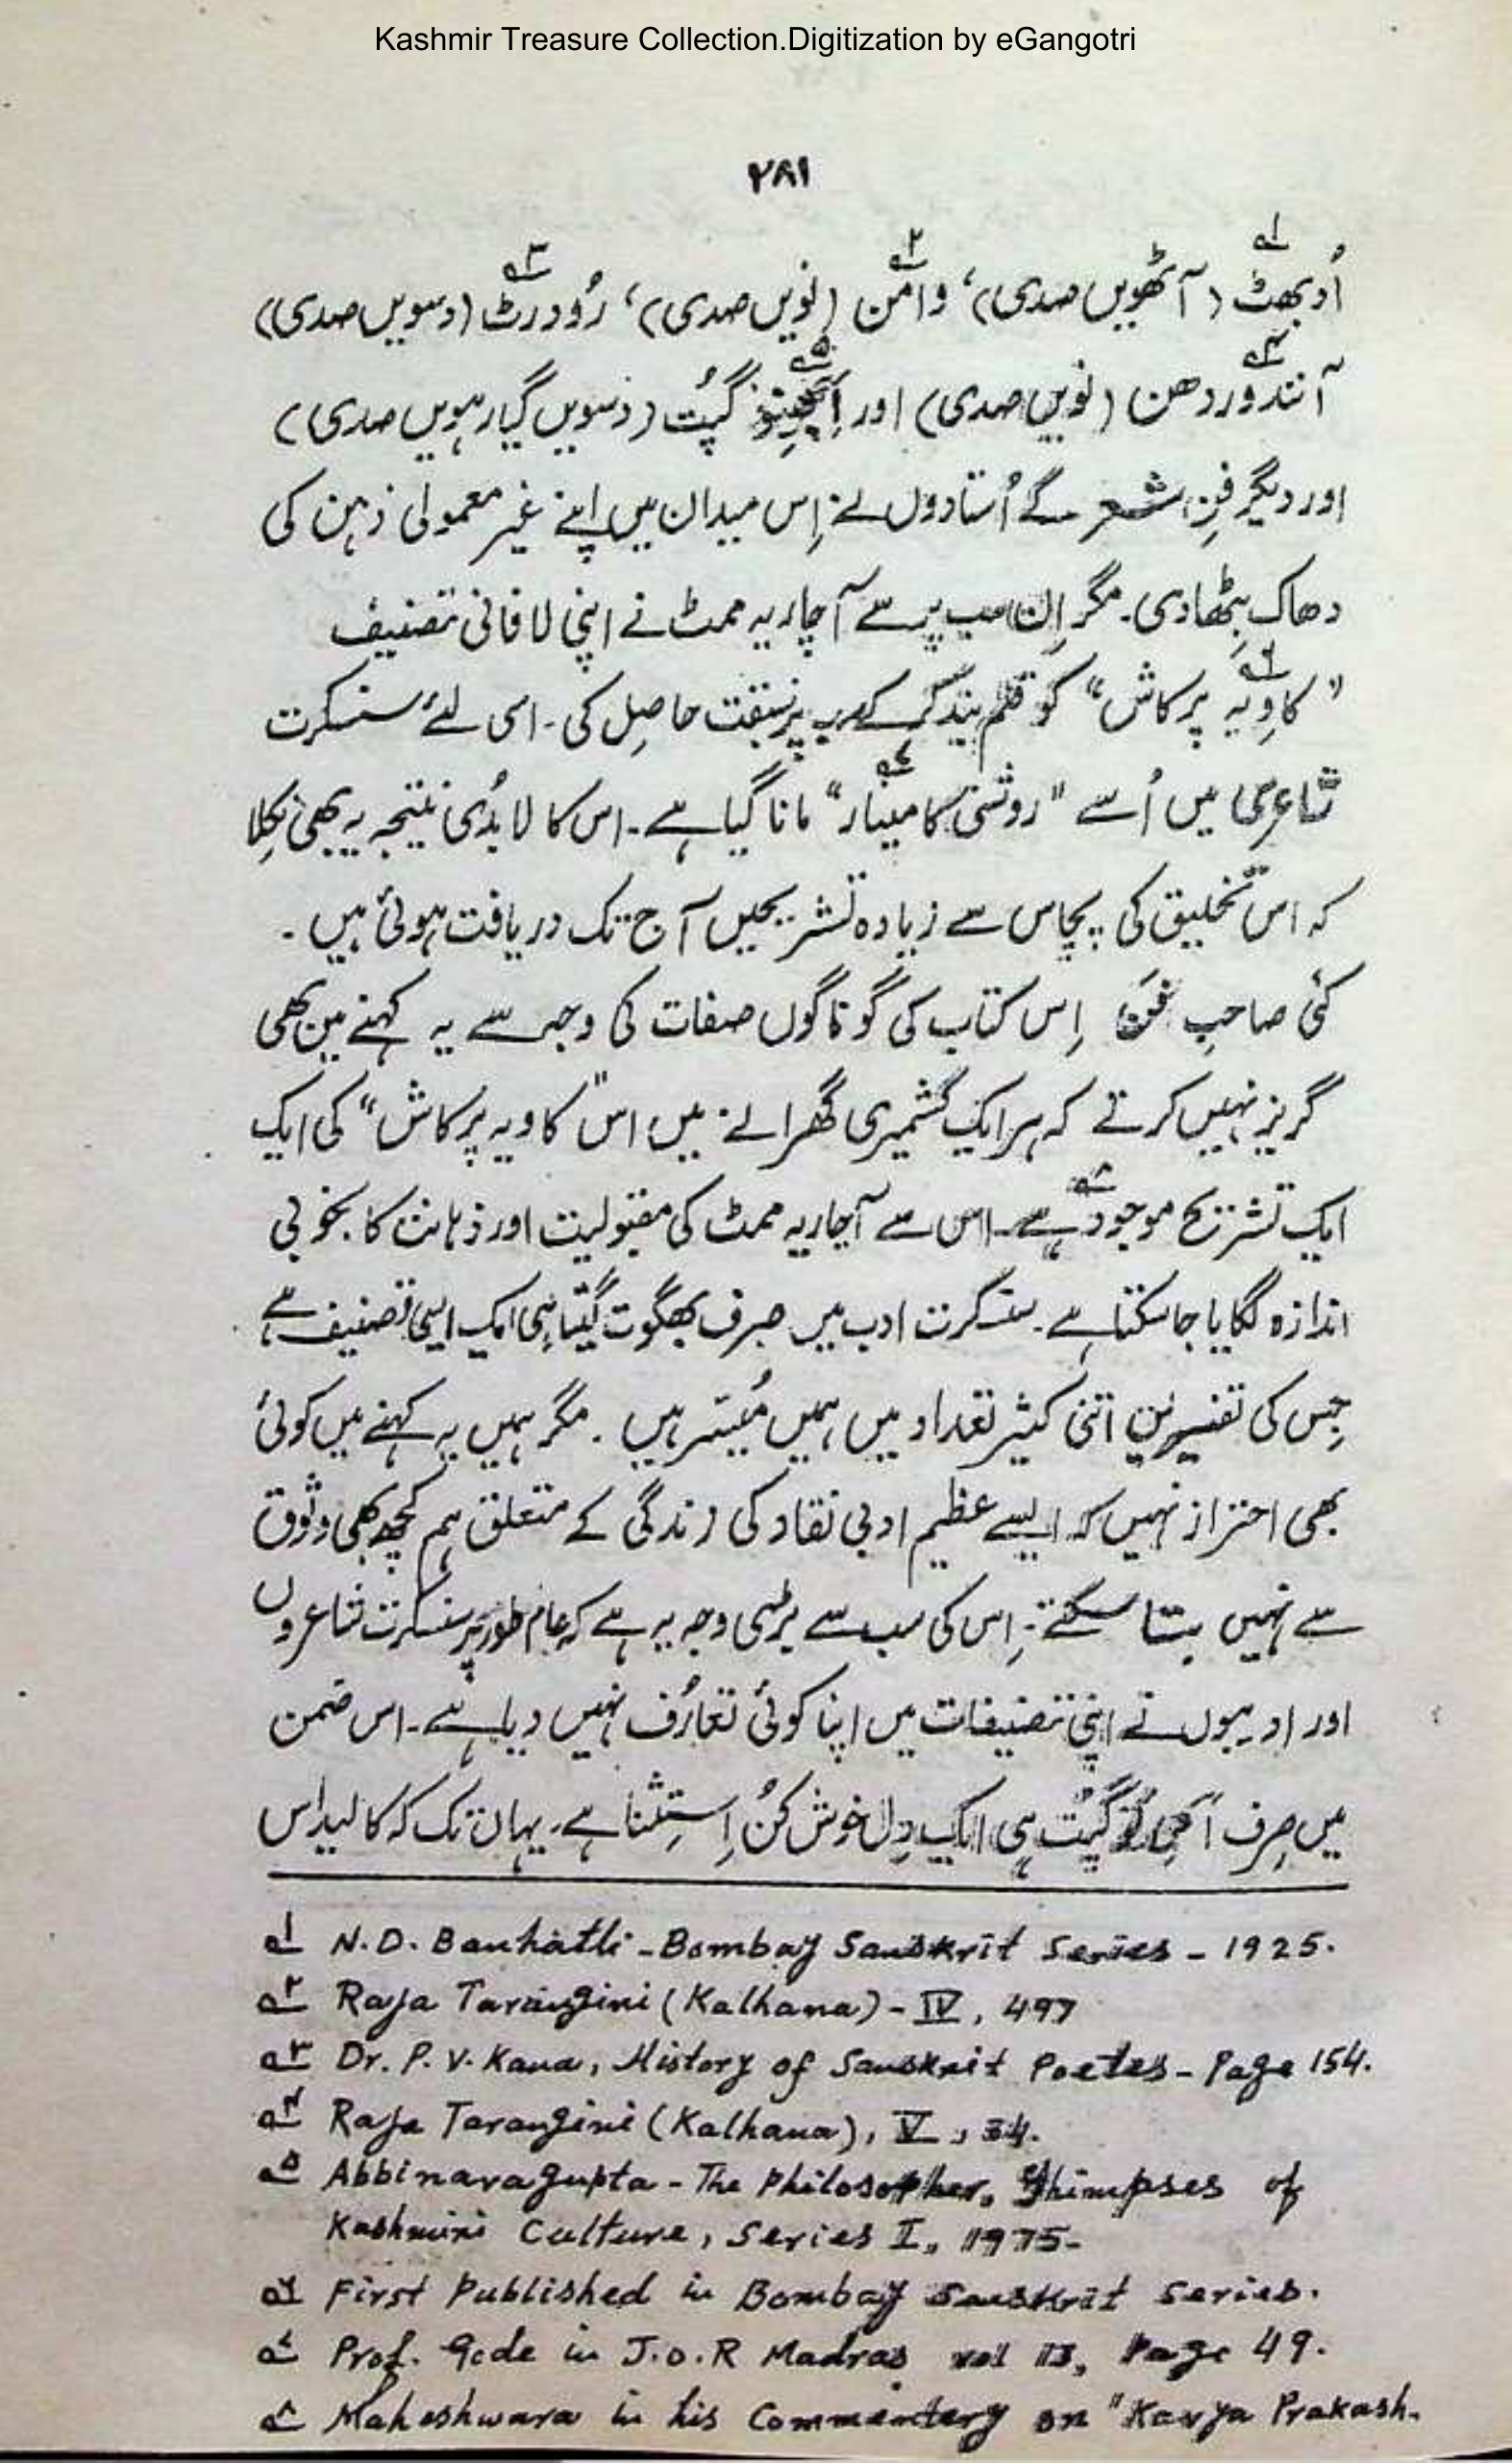 Kashmir Treasure Collection.Digitization by eGangotri
۲۸۱
اُدبھٹ۱؎ (آٹھویں صدی)، وامن۲؎ (نویں صدی)، رُودرٹ۳؎ (دسویں صدی)
آنندوردھن۴؎ (نویں صدی) اور گپُت۵؎ (دسویں گیارہویں صدی)
اور دیگر فنِ شعر کے اُستادوں نے اِس میدان میں اپنے غیر معمولی ذہن کی
دھاک بِٹھادی۔ مگر اِن سب پر سے آچاریہ ممٹ نے اپنی لافانی تصنیف
"کاوِیہ پرکاش"۶؎ کو قلم بند کر کے سب پر سبقت حاصِل کی۔ اسی لئے سنسکرت
شاعری میں اُسے "روشنی کا مینار"۷؎ مانا گیا ہے۔ اس کا لابُدی نتیجہ یہ بھی نِکلا
کہ اس تخلیق کی پچاس سے زیادہ تشریحیں آج تک دریافت ہوئی ہیں۔
کئی صاحبِ فن اِس کتاب کی گوناگوں صفات کی وجہ سے یہ کہنے میں بھی
گریز نہیں کرتے کہ ہر ایک کشمیری گھرانے میں اس "کاویہ پرکاش" کی ایک
ایک تشریح موجود۸؎ ہے۔ اس سے آچاریہ ممٹ کی مقبولیت اور ذہانت کا بخوبی
اندازہ لگایا جاسکتا ہے۔ سنسکرت ادب میں صِرف بھگوت گیتا ہی ایک ایسی تصنیف ہے
جِس کی تفسیریں اتنی کثیر تعداد میں ہمیں مُیسّر ہیں۔ مگر ہمیں یہ کہنے میں کوئی
بھی احتراز نہیں کہ ایسے عظیم ادبی نقاد کی زندگی کے متعلق ہم کچھ بھی وثوق
سے نہیں بتا سکتے۔ اِس کی سب سے بڑی وجہ یہ ہے کہ عام طور پر سنسکرت شاعروں
اور ادیبوں نے اپنی تصنیفات میں اپنا کوئی تعارُف نہیں دیا ہے۔ اس ضمن
میں صِرف گپُت ہی ایک دِل خوش کُن اِستِثنا ہے۔ یہاں تک کہ کالیداس
۱؎ N.D. Banhatti - Bombay Sanskrit Series - 1925.
۲؎ Raja Tarangini (Kalhana) - IV, 497
۳؎ Dr. P. V. Kana, History of Sanskrit Poetes - Page 154.
۴؎ Raja Tarangini (Kalhana), V, 34.
۵؎ Abbinavagupta - The Philosopher, Ghimpses of
Kashmiri Culture, Series I, 1975-
۶؎ First Published in Bombay Sanskrit Series.
۷؎ Prof. Gode in J.O.R Madras vol 13, Page 49.
۸؎ Maheshwara in his Commentery on "Kavya Prakash.